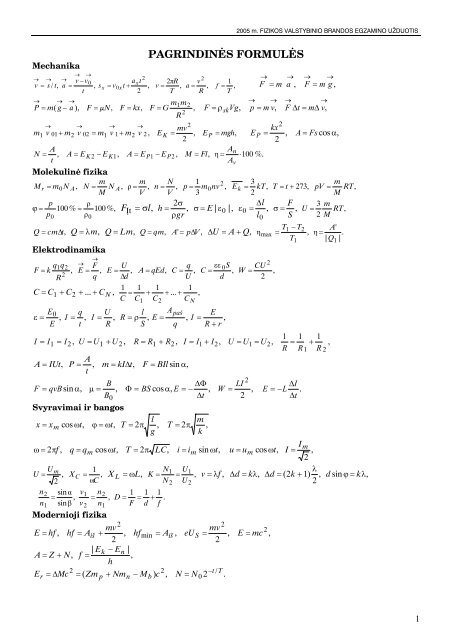 2005 m. FIZIKOS VALSTYBINIO BRANDOS EGZAMINO UŽDUOTIS
PAGRINDINĖS FORMULĖS
Mechanika
v⃗ = s⃗ / t, a⃗ = (v⃗ − v⃗₀)/t, sₓ = v₀ₓt + aₓt²/2, v = 2πR/T, a = v²/R, f = 1/T, F⃗ = m a⃗, F⃗ = m g⃗,
P⃗ = m(g⃗ − a⃗), F = μN, F = kx, F = G m₁m₂/R², F = ρ_sk Vg, p⃗ = m v⃗, F⃗ Δt = mΔ v⃗,
m₁ v⃗₀₁ + m₂ v⃗₀₂ = m₁ v⃗₁ + m₂ v⃗₂, E_K = mv²/2, E_P = mgh, E_P = kx²/2, A = Fs cos α,
N = A/t, A = E_K2 − E_K1, A = E_P1 − E_P2, M = Fl, η = Aₙ/Aᵥ · 100 %.
Molekulinė fizika
M_r = m₀N_A, N = m/M N_A, ρ = m/V, n = N/V, p = 1/3 m₀nv², E̅_k = 3/2 kT, T = t + 273, pV = m/M RT,
φ = p/p₀ 100% = ρ/ρ₀ 100%, F_It = σl, h = 2σ/ρgr, σ = E | ε₀ |, ε₀ = Δl/l₀, σ = F/S, U = 3/2 m/M RT,
Q = cmΔt, Q = λm, Q = Lm, Q = qm, A' = pΔV, ΔU = A + Q, η_max = (T₁ − T₂)/T₁, η = A'/| Q₁ |.
Elektrodinamika
F = k q₁q₂/R², E⃗ = F⃗/q, E = U/Δd, A = qEd, C = q/U, C = εε₀S/d, W = CU²/2,
C = C₁ + C₂ + ... + C_N, 1/C = 1/C₁ + 1/C₂ + ... + 1/C_N,
ε = E₀/E, I = q/t, I = U/R, R = ρ l/S, E = A_paš/q, I = E/(R + r),
I = I₁ = I₂, U = U₁ + U₂, R = R₁ + R₂, I = I₁ + I₂, U = U₁ = U₂, 1/R = 1/R₁ + 1/R₂,
A = IUt, P = A/t, m = kIΔt, F = BIl sin α,
F = qvB sin α, μ = B/B₀, Φ = BS cos α, E = − ΔΦ/Δt, W = LI²/2, E = −L ΔI/Δt.
Svyravimai ir bangos
x = xₘ cos ωt, φ = ωt, T = 2π √(l/g), T = 2π √(m/k),
ω = 2πf, q = qₘ cos ωt, T = 2π √LC, i = iₘ sin ωt, u = uₘ cos ωt, I = Iₘ/√2,
U = Uₘ/√2, X_C = 1/ωC, X_L = ωL, N₁/N₂ = U₁/U₂, v = λf, Δd = kλ, Δd = (2k + 1) λ/2, d sin φ = kλ,
n₂/n₁ = sin α/sin β, v₁/v₂ = n₂/n₁, D = 1/F = 1/d + 1/f.
Modernioji fizika
E = hf, hf = A_iš + mv²/2, hf_min = A_iš, eU_S = mv²/2, E = mc²,
A = Z + N, f = | E_k − E_n |/h,
E_r = ΔMc² = (Zm_p + Nm_n − M_b)c², N = N₀ 2^(−t/T).
1